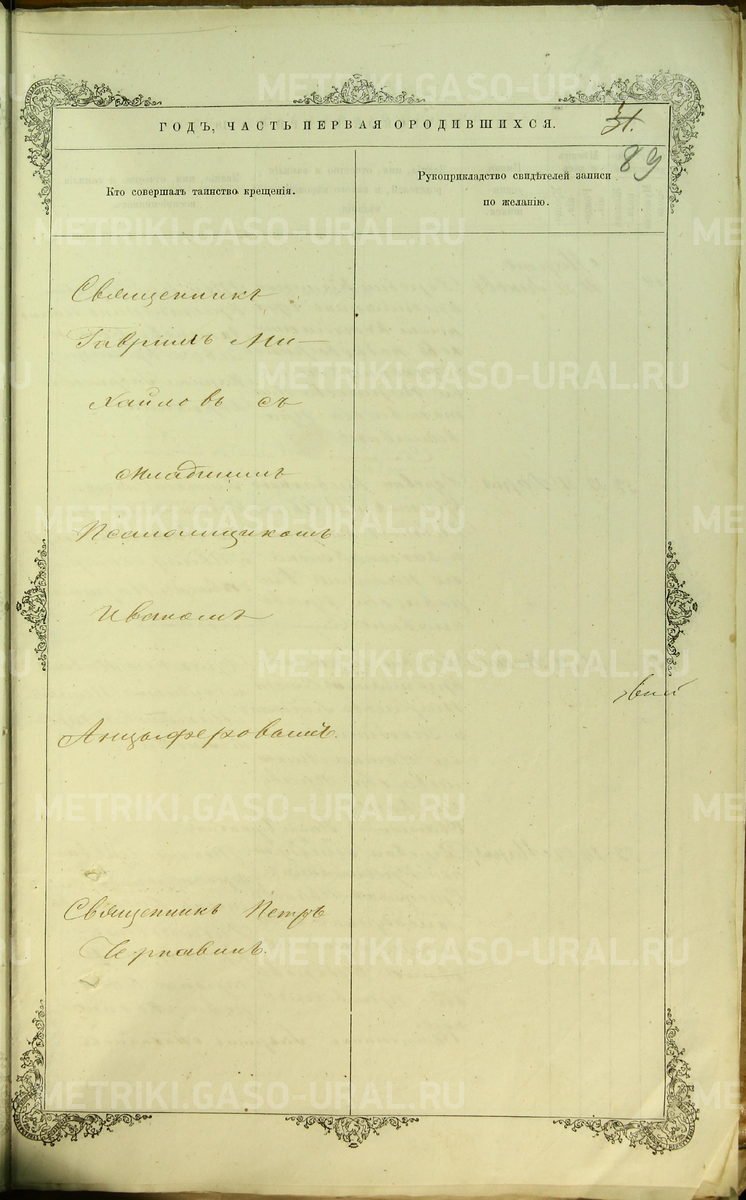 ГОДЪ, ЧАСТЬ ПЕРВАЯ О РОДИВШИХСЯ.
89
Кто совершалъ таинство крещенія.
Рукоприкладство свидѣтелей записи
по желанію.
Священникъ
Гавріилъ Ми-
хайловъ съ
младшимъ
Псаломщикомъ
Иваномъ
Анцыферовымъ.
Священникъ Петръ
Чернавинъ.
METRIKI.GASO-URAL.RU